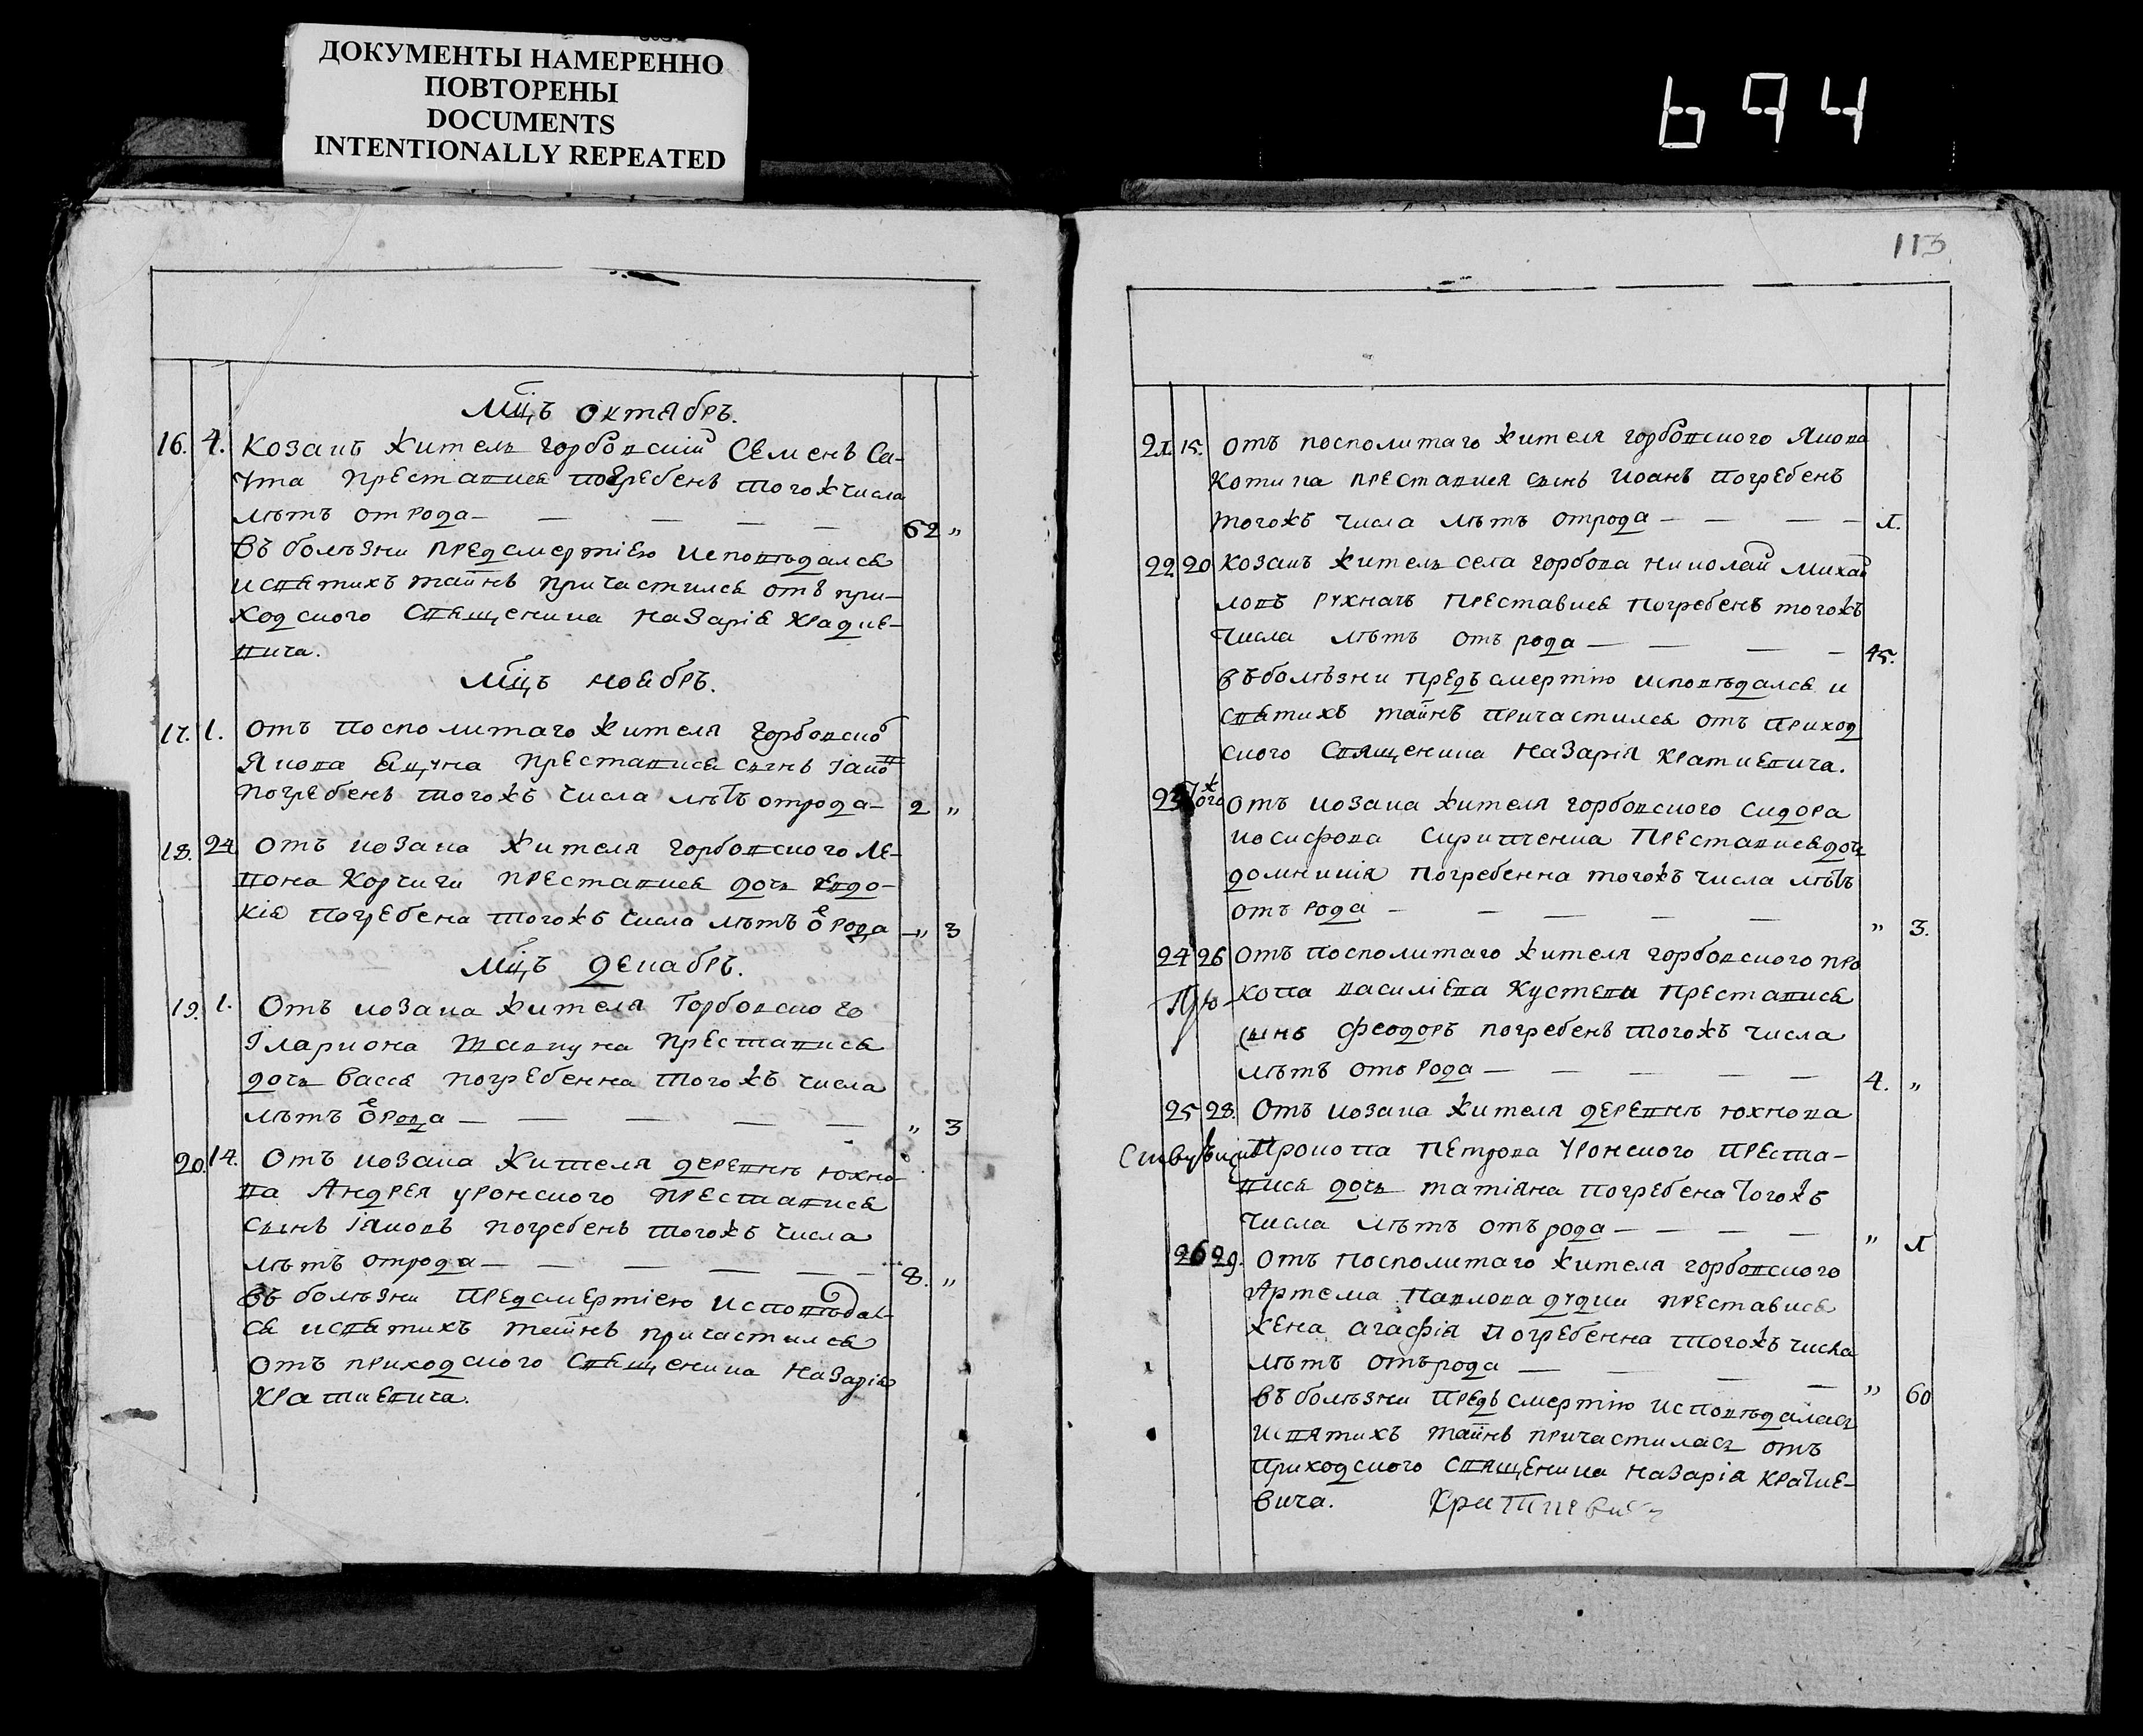 ДОКУМЕНТЫ НАМЕРЕННО
ПОВТОРЕНЫ
DOCUMENTS
INTENTIONALLY REPEATED
694
Мцъ октябрь.
16. 4. Козакъ житель горбовскій Семенъ Са-
престависѧ погребенъ того жъ числа
лѣтъ отрода — 62 „
въ болѣзни предсмертїею исповѣдалсѧ
исвѧтихъ тайнъ причастилсѧ отъ при-
ходского свѧщеника Назаріѧ
вича.
Мцъ ноѧбрь.
17. 1. отъ посполитаго жителя горбовско
Якова престависѧ сынъ
погребенъ того жъ числа лѣтъ отрода — 2 „
18. 24 отъ козака жителя горбовского Ле-
вона Корчиги престависѧ дочь Евдо-
кіѧ погребена того жъ числа лѣтъ ѿ рода — „ 3
Мцъ декабрь.
19. 1. Отъ козака жителя Горбовского
Ілариона престависѧ
дочь Вассѧ погребенна того жъ числа
лѣтъ ѿ рода — „ 3
20. 14. Отъ козака жителя деревнѣ Юхно-
ва Андрея Уронского престависѧ
сынъ Іяковъ погребенъ того жъ числа
лѣтъ отрода — 8. „
въ болѣзни предсмертїею исповѣдал-
сѧ исвѧтихъ тайнъ причастилсѧ
отъ приходского свѧщеника Назаріѧ
Краткевича.
113
21. 15. отъ посполитаго жителя горбовского Якова
Котика преставися сынъ Иоанъ погребенъ
тогожъ числа лѣтъ отрода — 1.
22 20 козакъ житель села горбова Николай Михай
ловъ Рухкачъ преставися погребенъ тогожъ
числа лѣтъ отъ рода — 45.
въболѣзни предъ смертію исповѣдалсѧ и
свѧтихъ тайнъ причастилсѧ отъ приход
ского священика Назарія Краткевича.
23 тогож отъ козака жителя горбовского Сидора
Иосифова престависѧ дочь
Домникія погребенна тогожъ числа лѣтъ
отъ рода — „ 3.
24 26 отъ посполитаго жителя горбовского Про
копа Василіева Кустева престависѧ
сынъ Феодоръ погребенъ тогожъ числа
лѣтъ отъ рода — 4. „
25 28. Отъ козака жителя деревнѣ Юхнова
Прокопа Петрова Уронского преста-
висѧ дочь Татіяна погребена тогожъ
числа лѣтъ отъ рода — „ 1
26 29. отъ посполитаго жителя горбовского
Артема Павлова Дудки преставись
жена Агафія погребенна тогожъ числа
лѣтъ отърода — „ 60
въ болѣзни предъ смертію исповѣдалась
исвятихъ тайнъ причастилась отъ
приходского священика Назарія Кратке-
вича.